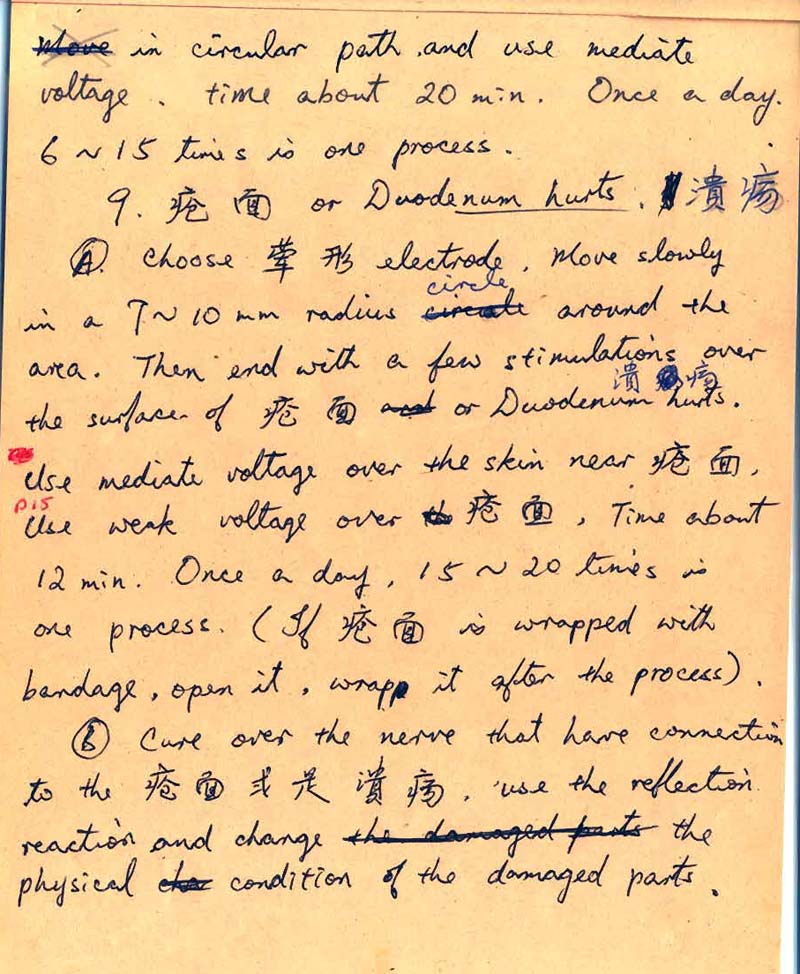 Move in circular path, and use mediate
voltage. time about 20 min. Once a day.
6 ~ 15 times is one process.
9. 疮面 or Duodenum hurts. 潰瘍
Ⓐ. Choose 蕈形 electrode, Move slowly
circle
in a 7~10 mm radius circule around the
area. Then end with a few stimulations over
潰瘍
the surface of 疮面 and or Duodenum hurts.
Use mediate voltage over the skin near 疮面,
P15
Use weak voltage over th 疮面, Time about
12 min. Once a day, 15 ~ 20 times is
one process. (If 疮面 is wrapped with
bandage, open it, wrapp it after the process).
Ⓑ Cure over the nerve that have connection
to the 疮面或是潰瘍, use the reflection
reaction and change the damaged parts the
physical cha condition of the damaged parts.